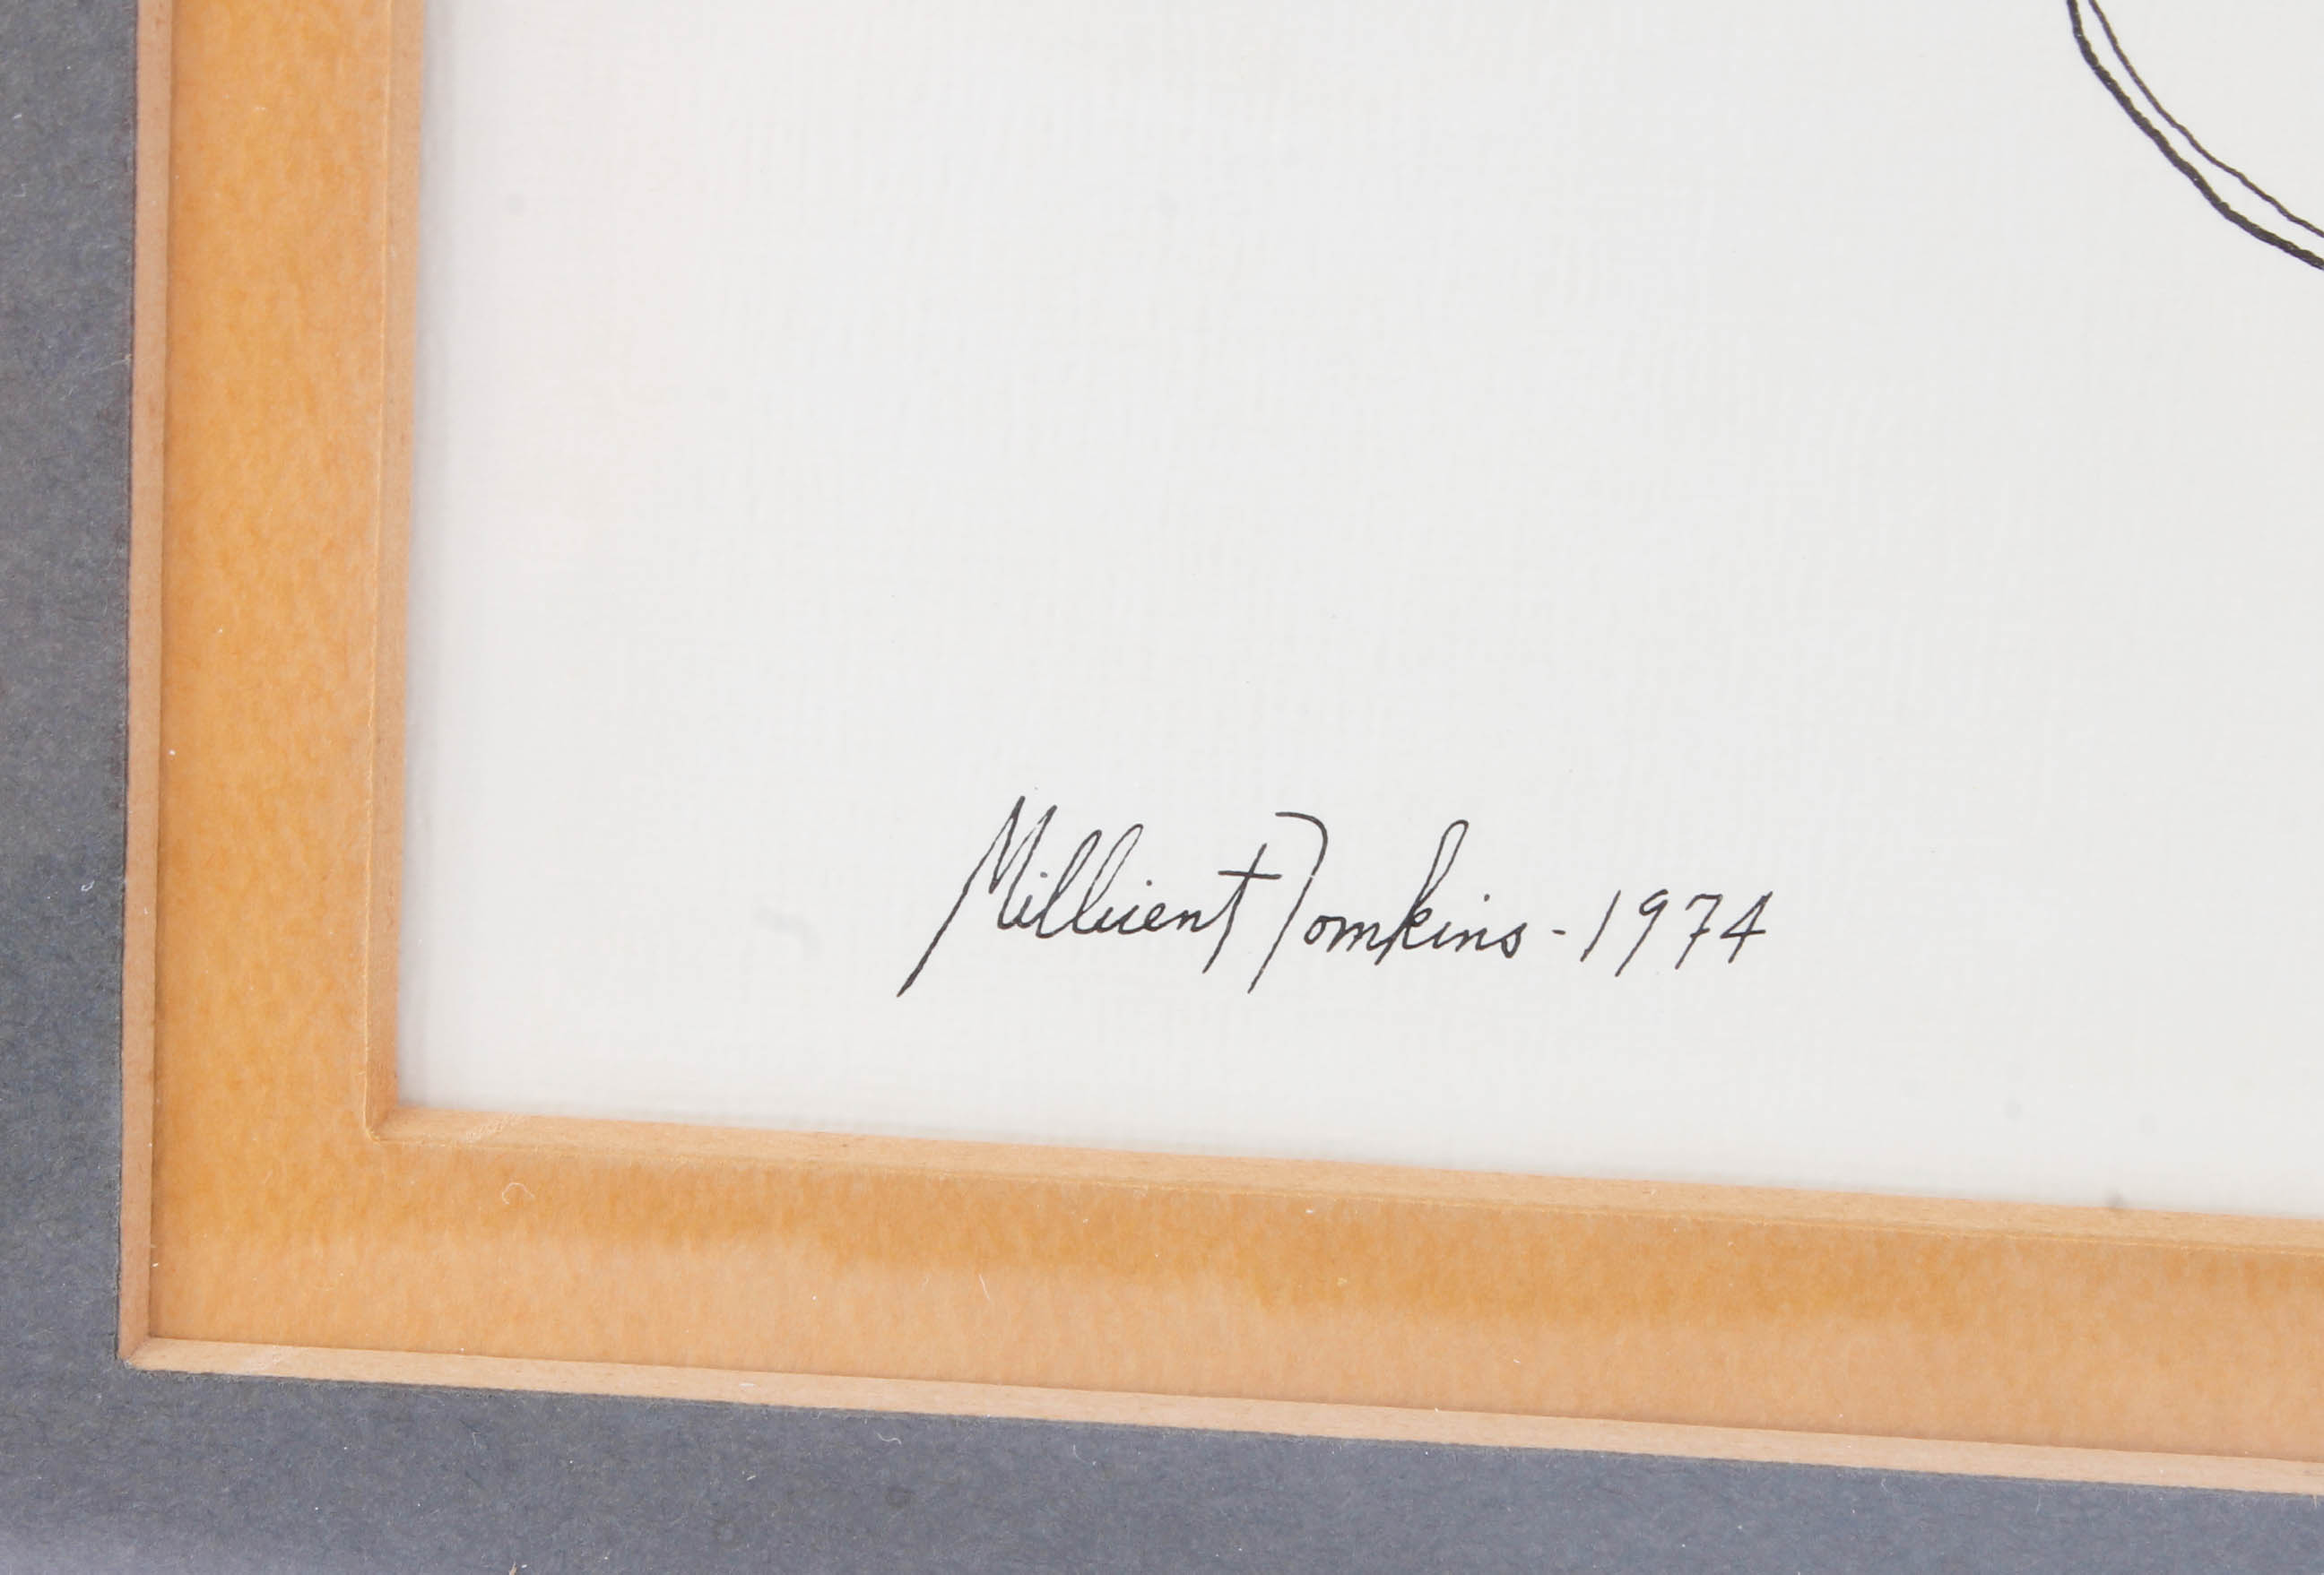 Millicent Tomkins - 1974